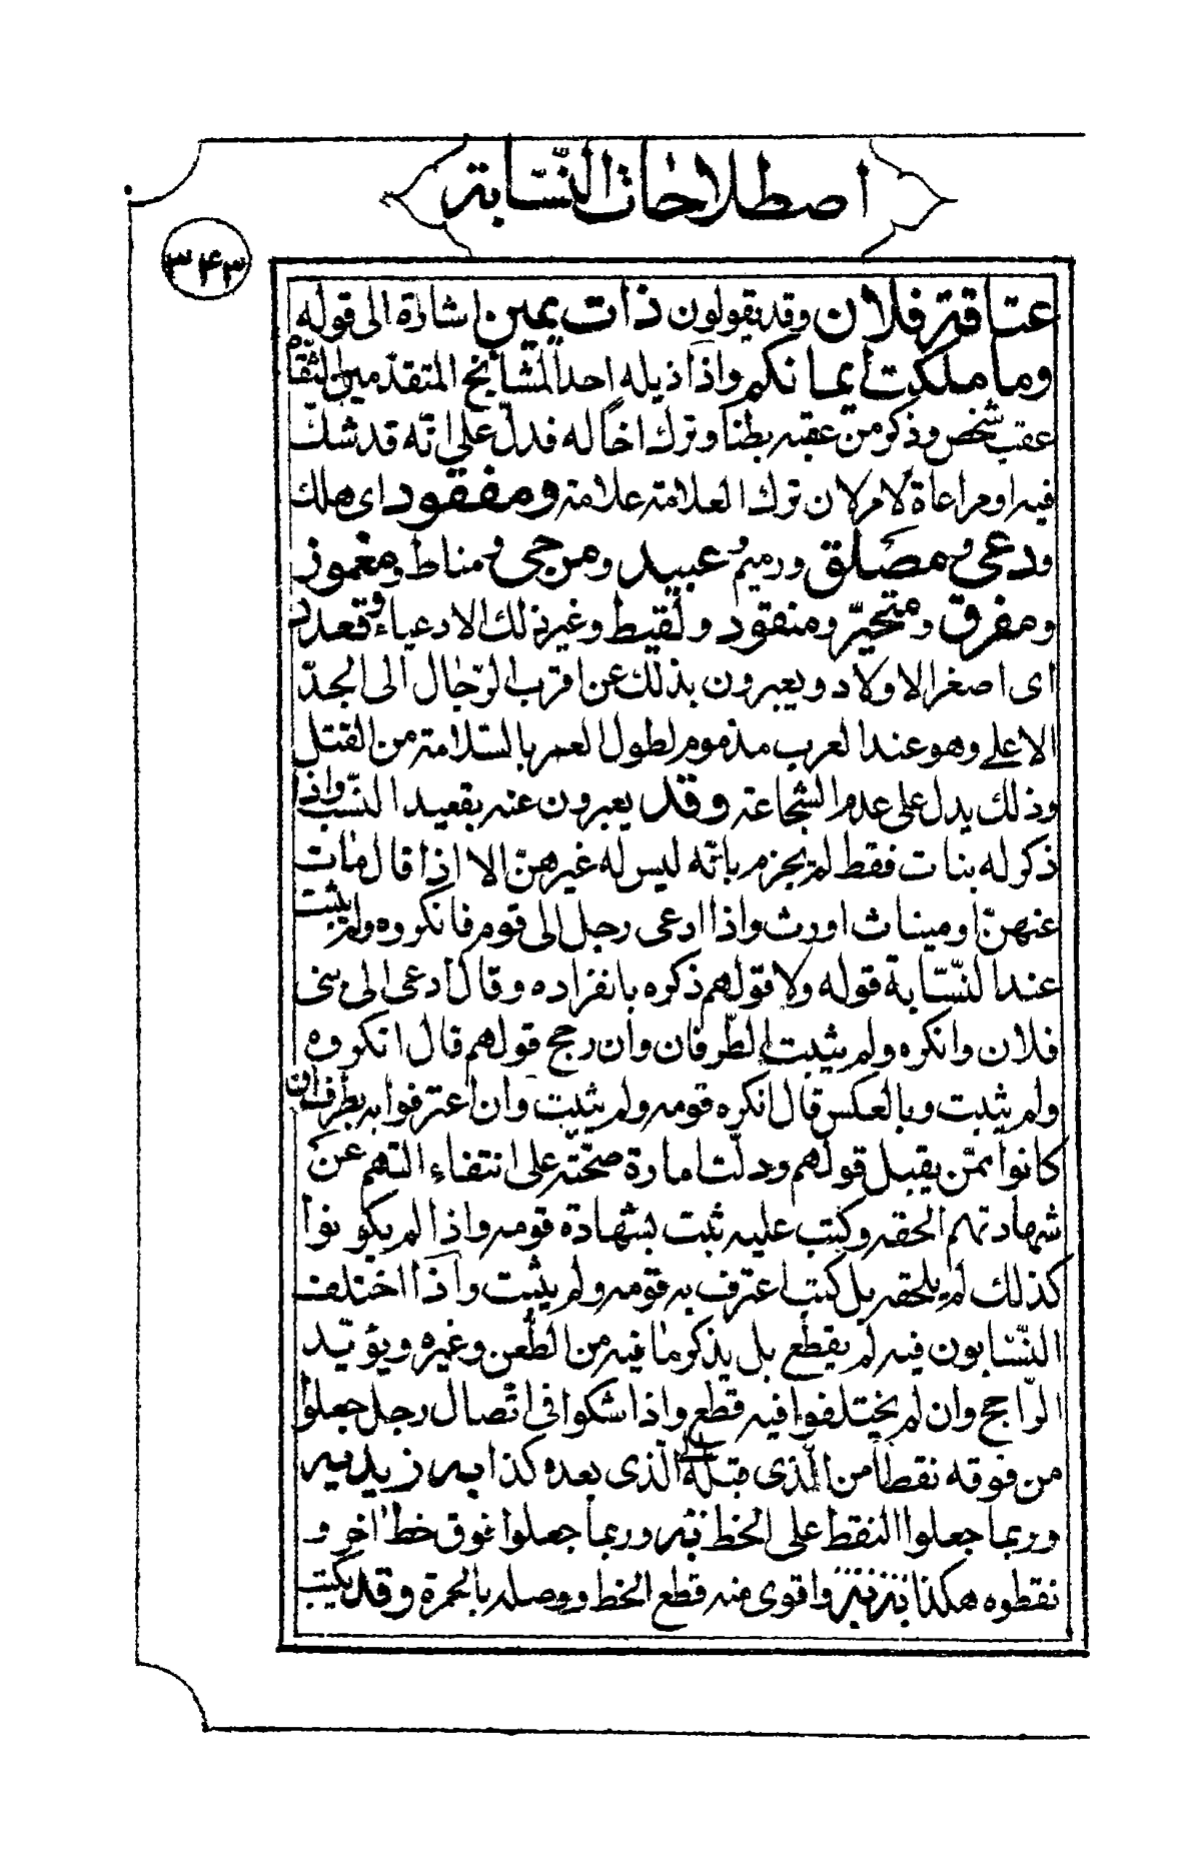 اصطلاحات النسّابة
٣٤٣
عتاقة فلان وقد يقولون ذات يمين اشارة الى قوله
وما ملكت ايمانكم واذا ذيله احد المشايخ المتقدّمين الثقاة
عقب شخص وذكر من عقبه بطنا وترك اخا له فدلّ على انّه قد شك
فيه او مراعاة لامر لان ترك العلامة علامة ومفقود اى هلك
ودعى ومصلق ورميم وعبيد ومرجى ومناط ومغموز
ومفرق ومتحيّر ومنقود ولقيط وغير ذلك الادعياء وقعدد
اى اصغر الاولاد ويعبرون بذلك عن اقرب الرّجال الى الجدّ
الاعلى وهو عند العرب مذموم لطول العمر بالسّلامة من القتل
وذلك يدل على عدم الشجاعة وقد يعبرون عنه بقعيد النّسب واذا
ذكر له بنات فقط لم يجزم بانّه ليس له غيرهنّ الا اذا قال مات
عنهنّ او ميناث اورث واذا ادعى رجل الى قوم فانكروه ولم يثبت
عند النّسّابة قوله ولا قولهم ذكره بانفراده وقال ادعى الى بنى
فلان وانكره ولم يثبت الطّرفان وان رجح قولهم قال انكروه
ولم يثبت وبالعكس قال انكره قومه ولم يثبت وان اعترفوا به بطرف ان
كانوا ممّن يقبل قولهم ودلّت امارة صحّته على انتفاء التهم عن
شهادتهم الحقه وكتب عليه ثبت بشهادة قومه واذا لم يكونوا
كذلك لم يلحقه بل كتب اعترف به قومه ولم يثبت واذا اختلف
النّسّابون فيه لم يقطع بل يذكر ما فيه من الطّعن وغيره ويؤيّد
الرّاجح وان لم يختلفوا فيه قطع واذا شكوا فى اتّصال رجل جعلوا
من فوقه نقطا من الّذى قبله الى الّذى بعده كذا به زيد نيه
وربما جعلوا النقط على الخط وربما جعلوا فوق خط اخر و
نقطوه هكذا واقوى منه قطع الخط ووصله بالحمرة وقد يكتب